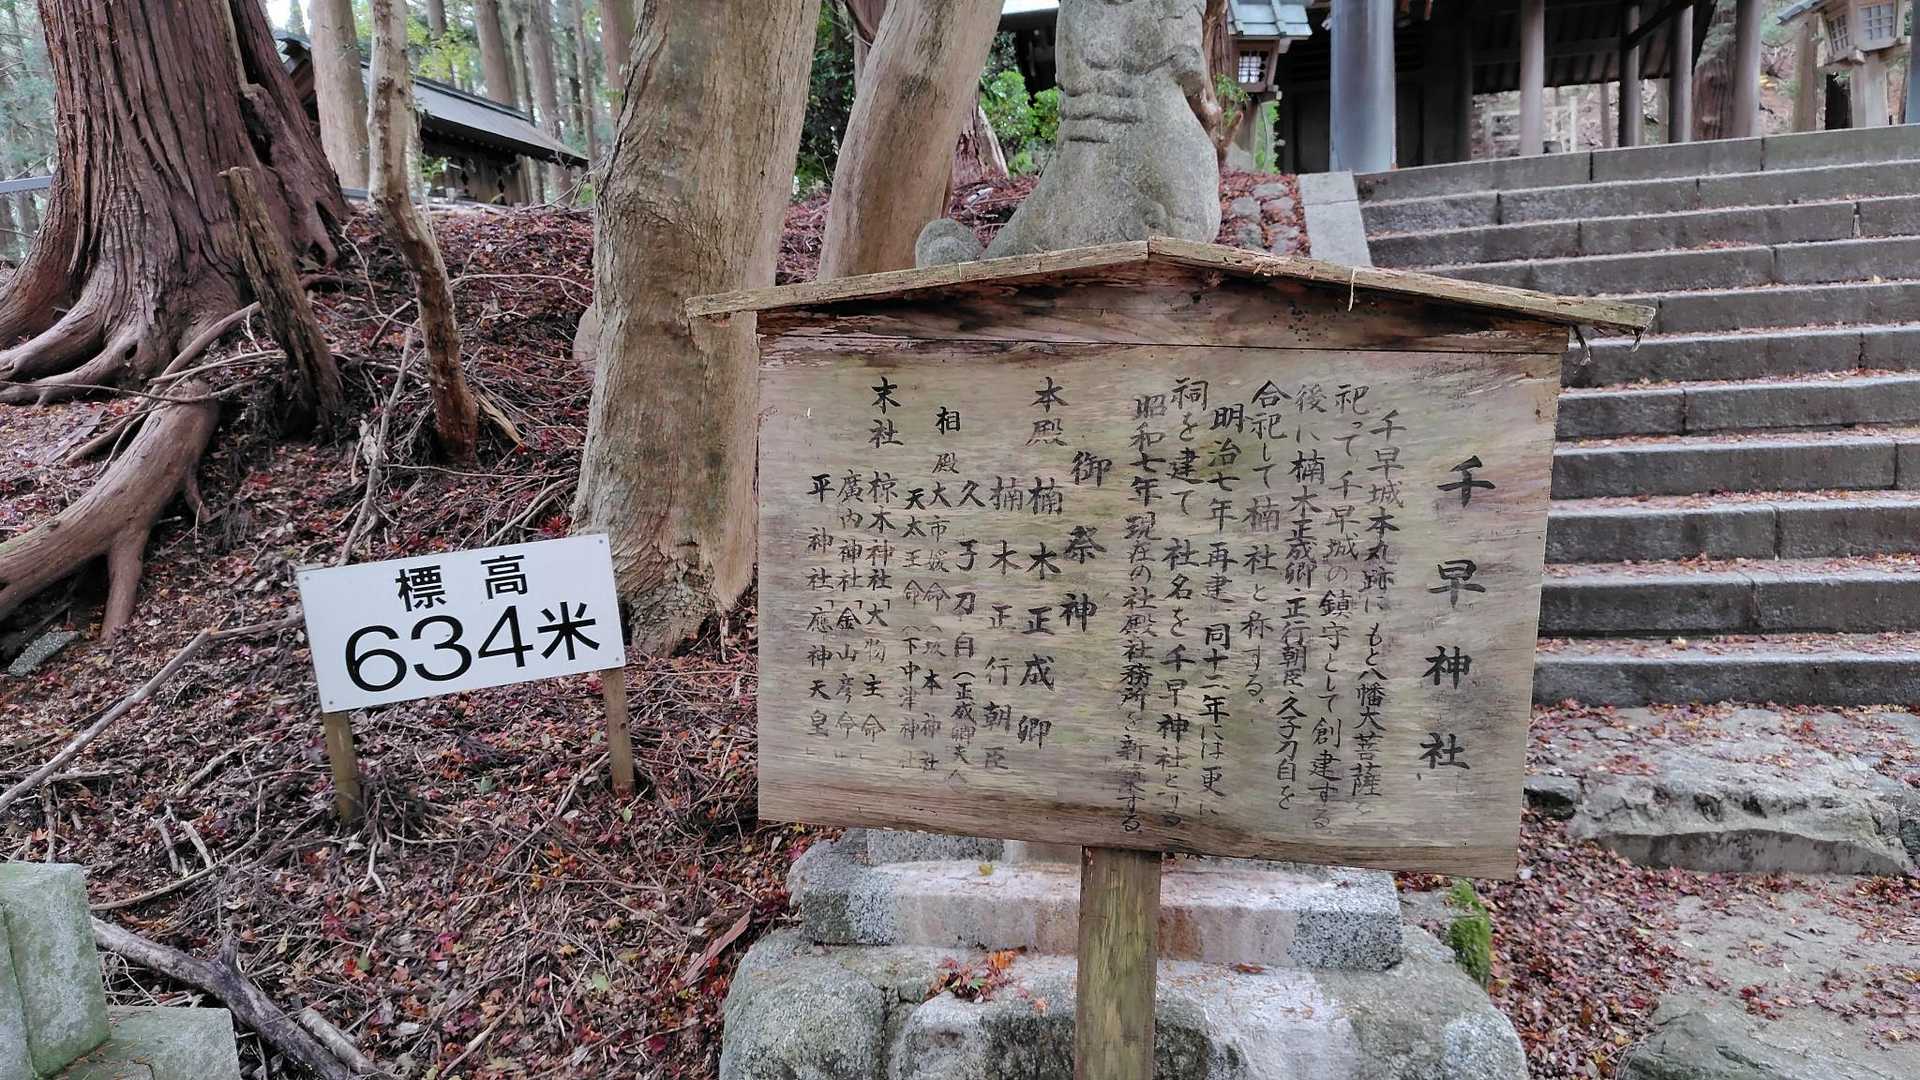 千早神社
千早城本丸跡にもと八幡大菩薩を
祀って千早城の鎮守として創建する
後に楠木正成卿・正行朝臣・久子刀自を
合祀して楠社と称する。
明治七年再建、同十二年には更に
祠を建て社名を千早神社とする
昭和七年現在の社殿社務所を新築する
御祭神
本殿 楠木正成卿
楠木正行朝臣
久子刀自(正成卿夫人
相殿 大市媛命(坂本神社
天太王命(下中津神社
末社 椋木神社「大物主命」
廣内神社「金山彦命」
平神社「應神天皇」
標高
634米